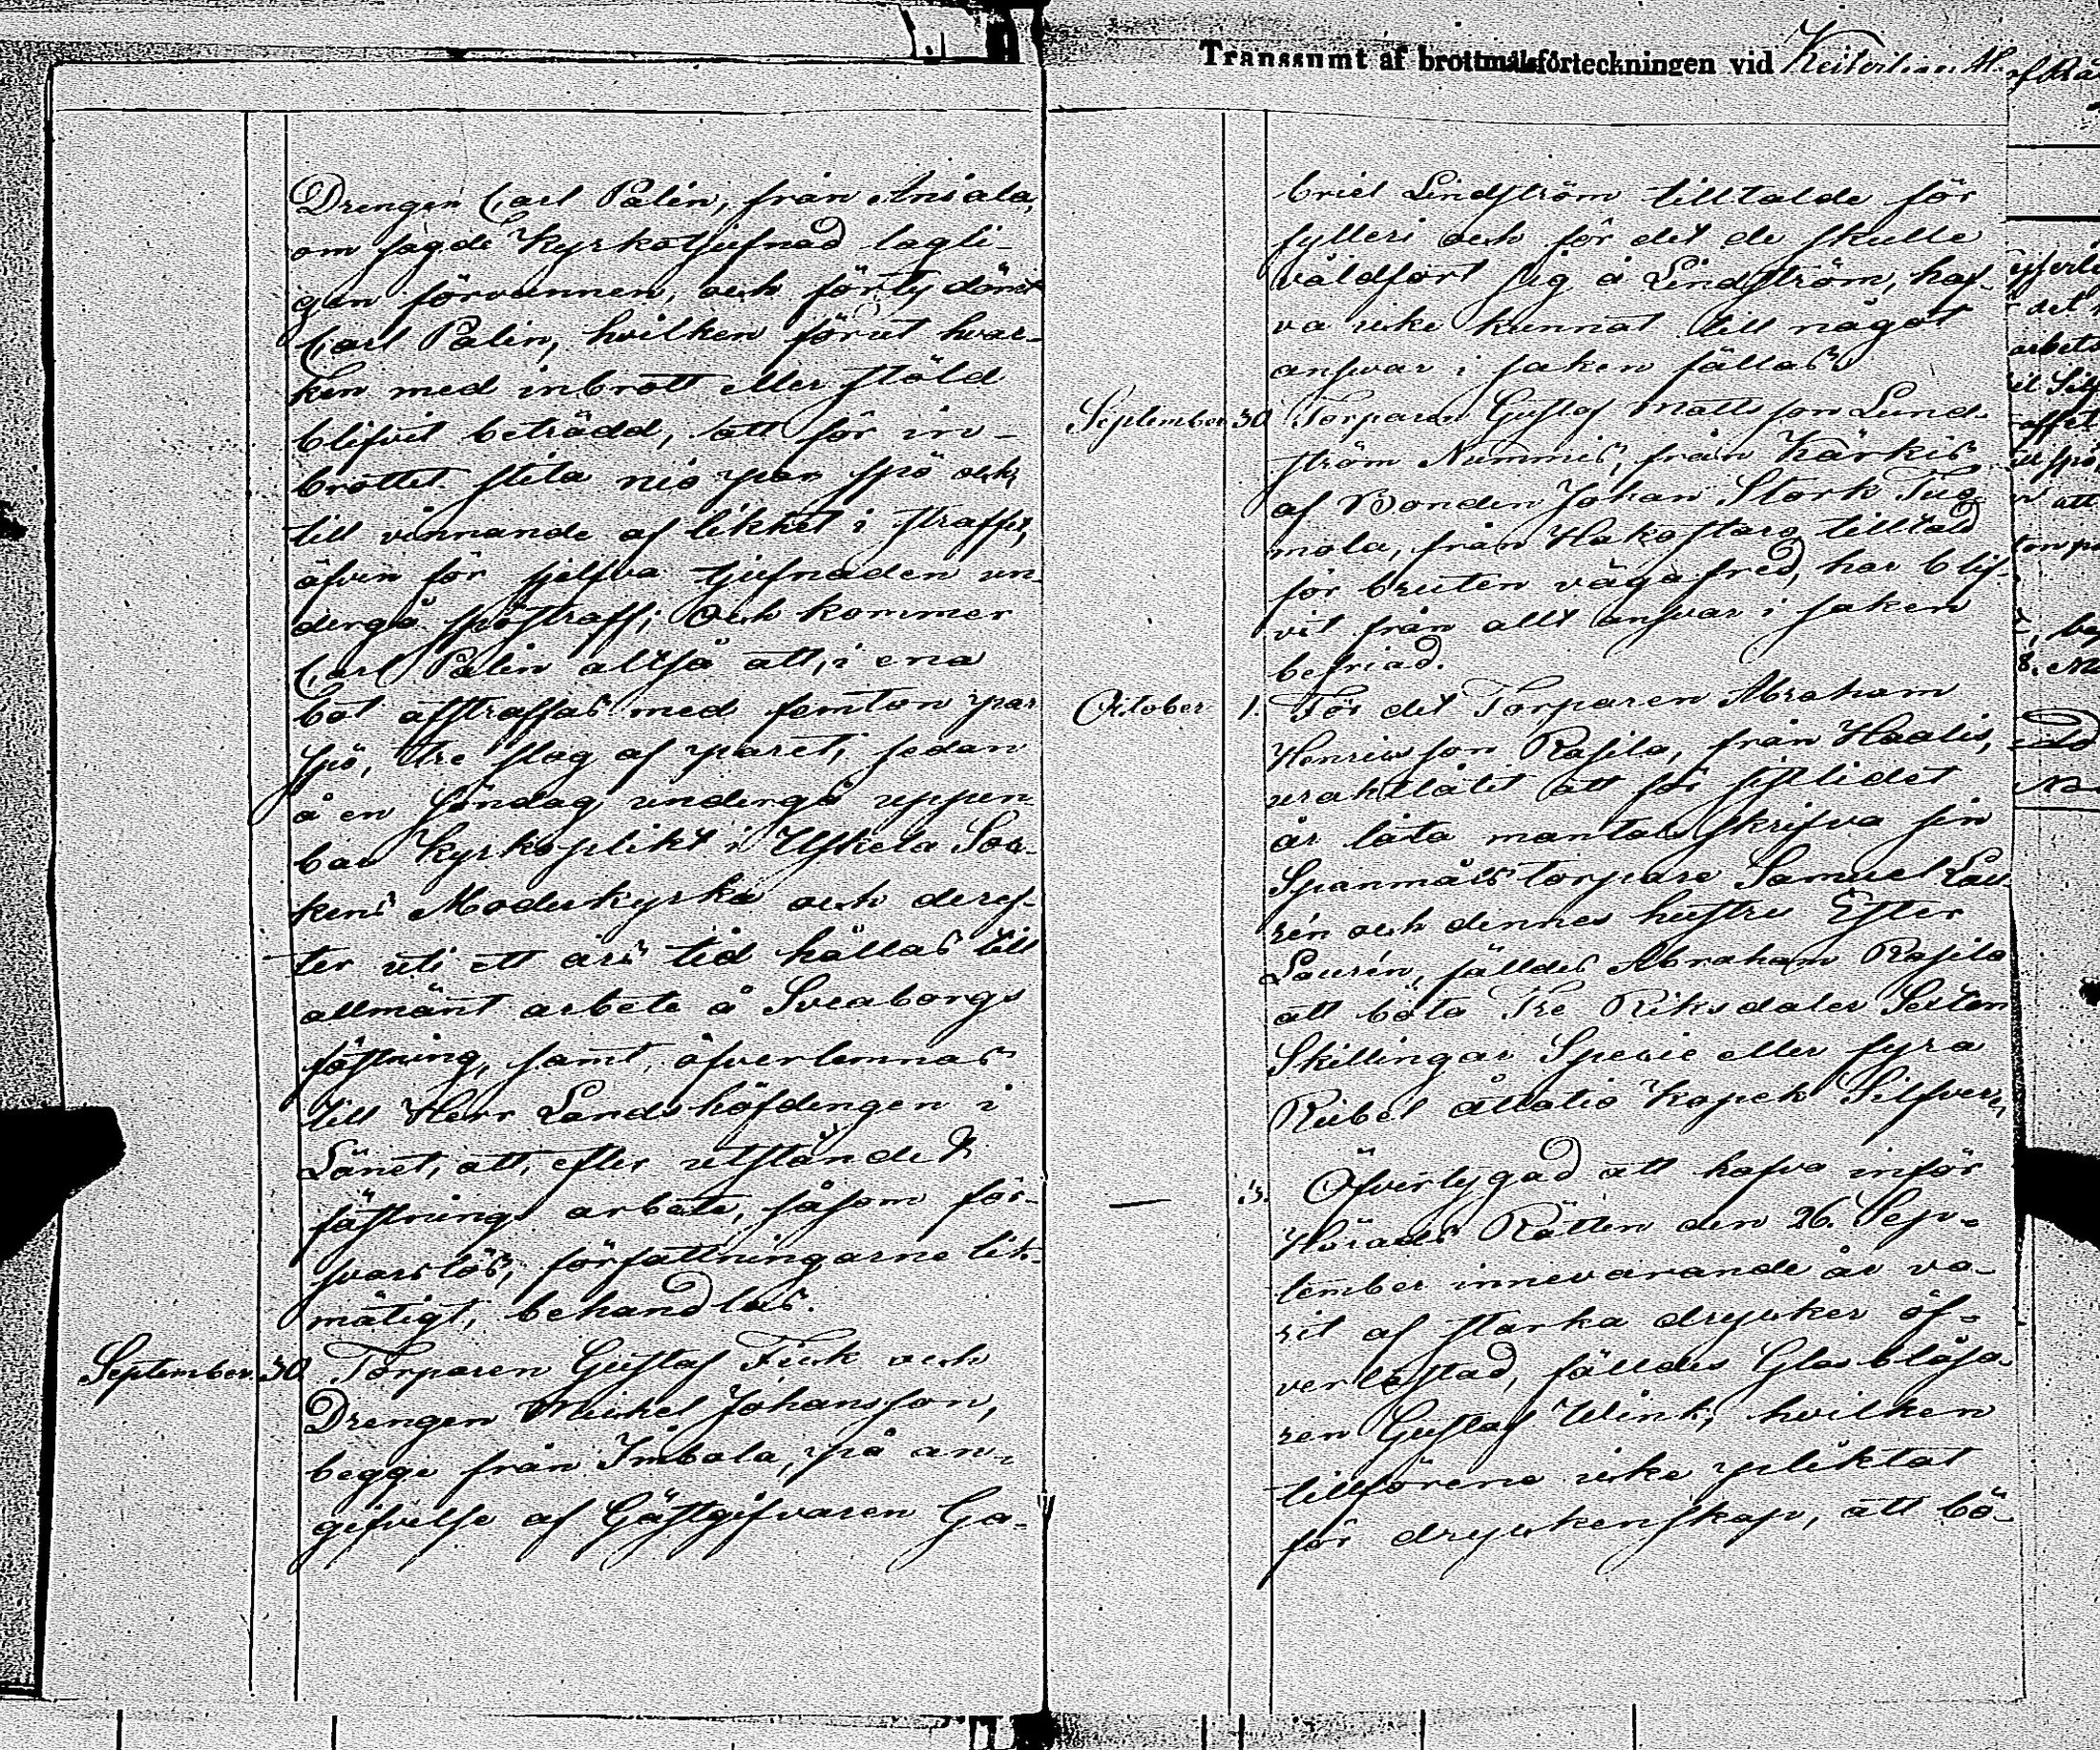 Drengen Carl Palin, från Ansala,
om sagde Kyrkotjufnad lagli-
gen förvunnen, och förty dömt
Carl Palin, hvilken förut hvar-
ken med inbrott eller stöld
blifvit beträdd, att för in-
brottet slita nio par spö och,
till vinnande af likhet i straffet,
äfven för sjelfva tjufnaden un-
dergå spöstraff; och kommer
Carl Palin altså att, i ena
bot afstraffas med femton par
spö, tre slag af paret, sedan
å en Söndag undergå uppen-
bar Kyrkoplikt i Uskela Soc-
kens Moderkyrka och deref-
ter uti ett års tid hållas till
allmänt arbete å Sveaborgs
fästning, samt öfverlemnas
till Herr Landshöfdingen i
Länet, att, efter utståndet
fästnings arbete, såsom för-
svarslös, författningarne lik-
mätigt, behandlas.
September 30. Torparen Gustaf Fink och
Drengen Mickel Johansson,
begge från Imbala, på an-
gifvelse af Gästgifvaren Ga-
Transsumt af brottmålsförteckningen vid
briel Lindström tilltalde för
fylleri och för det de skulle
våldfört sig å Lindström, haf-
va icke kunnat till något
answar i saken fällas.
September 30 Torparen Gustaf Mattsson Lund-
ström Nummis, från Kärkis
af Bonden Johan Stork Tuo-
mola, från Hakostaro tilltald
för bruten vägafred, har blif-
vit från allt answar i saken
befriad.
October 1. För det Torparen Abraham
Henricsson Rasila, från Haalis,
uraktlåtit att för sistlidet
år låta mantalsskrifva sin
Spanmåls torpare Samuel Lau-
rén och dennes hustru Ester
Laurén, fälldes Abraham Rasila
att böta Tre Riksdaler Sexton
Skillingar Specie eller fyra
Rubel åttatio Kopek Silfver,
— Öfvertygad att hafva inför
Härads Rätten den 26. Sep-
tember innevarande år va-
rit af starka drycker öf-
verlastad, fälldes Glasblåsa-
ren Gustaf Wink, hvilken
tillförene icke pliktat
för dryckenskap, att bö-